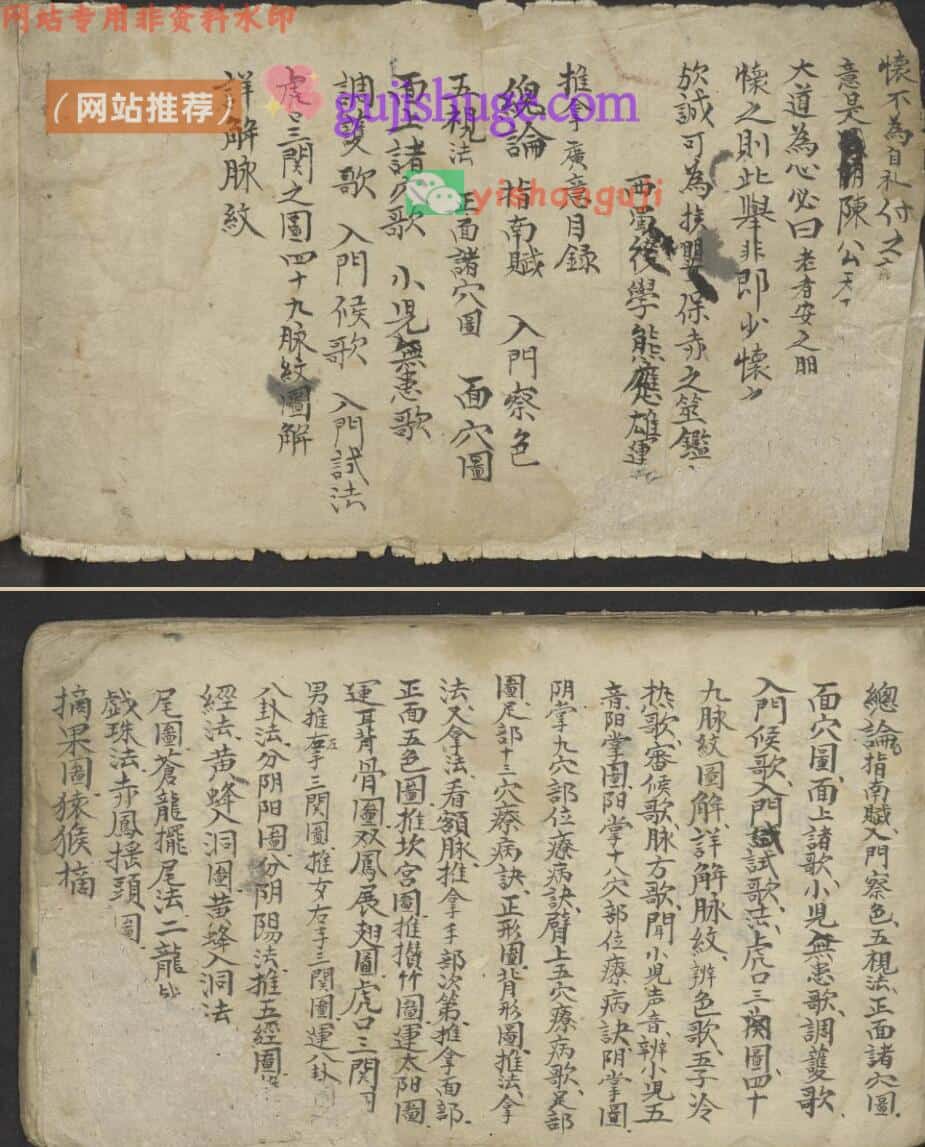 网站专用非资料水印
（网站推荐）
gujishuge.com
yishanguji
懷不為自礼付之
意是陳公天下
大道為心必曰老者安之朋
懷之則此舉非即少懷
於誠可為扶嬰保赤之筮鑑
西蜀後學熊應雄運
推拿廣意目錄
總論 指南賦 入門察色
五視法 正面諸穴圖 面穴圖
面上諸穴歌 小児無患歌
調護歌 入門候歌 入門試法
虎口三關之圖四十九脉紋圖解
詳解脉紋
總論指南賦入門察色五視法正面諸穴圖
面穴圖面上諸歌小児無患歌調護歌
入門候歌入門試法上虎口三関圖四十
九脉紋圖解詳解脉紋辨色歌五子冷
热歌審候歌脉方歌聞小児声音辨小児五
音阳掌圖阳掌十八穴部位療病訣阴掌圖
阴掌九穴部位療病訣臂上五穴療病歌足部
圖足部十三穴療病訣正形圖背形圖推法拿
法又拿法看額脉推拿手部次第推拿面部
正面五色圖推坎宮圖推攢竹圖運太阳圖
運耳背骨圖双鳳展翅圖虎口三関
男推左手三関圖推女右手三関圖運八卦
八卦法分阴阳圖分阴陽法推五經圖
經法黄蜂入洞圖黄蜂入洞法
尾圖蒼龍擺尾法二龍
戲珠法赤鳳摇頭圖
摘果圖猿猴摘